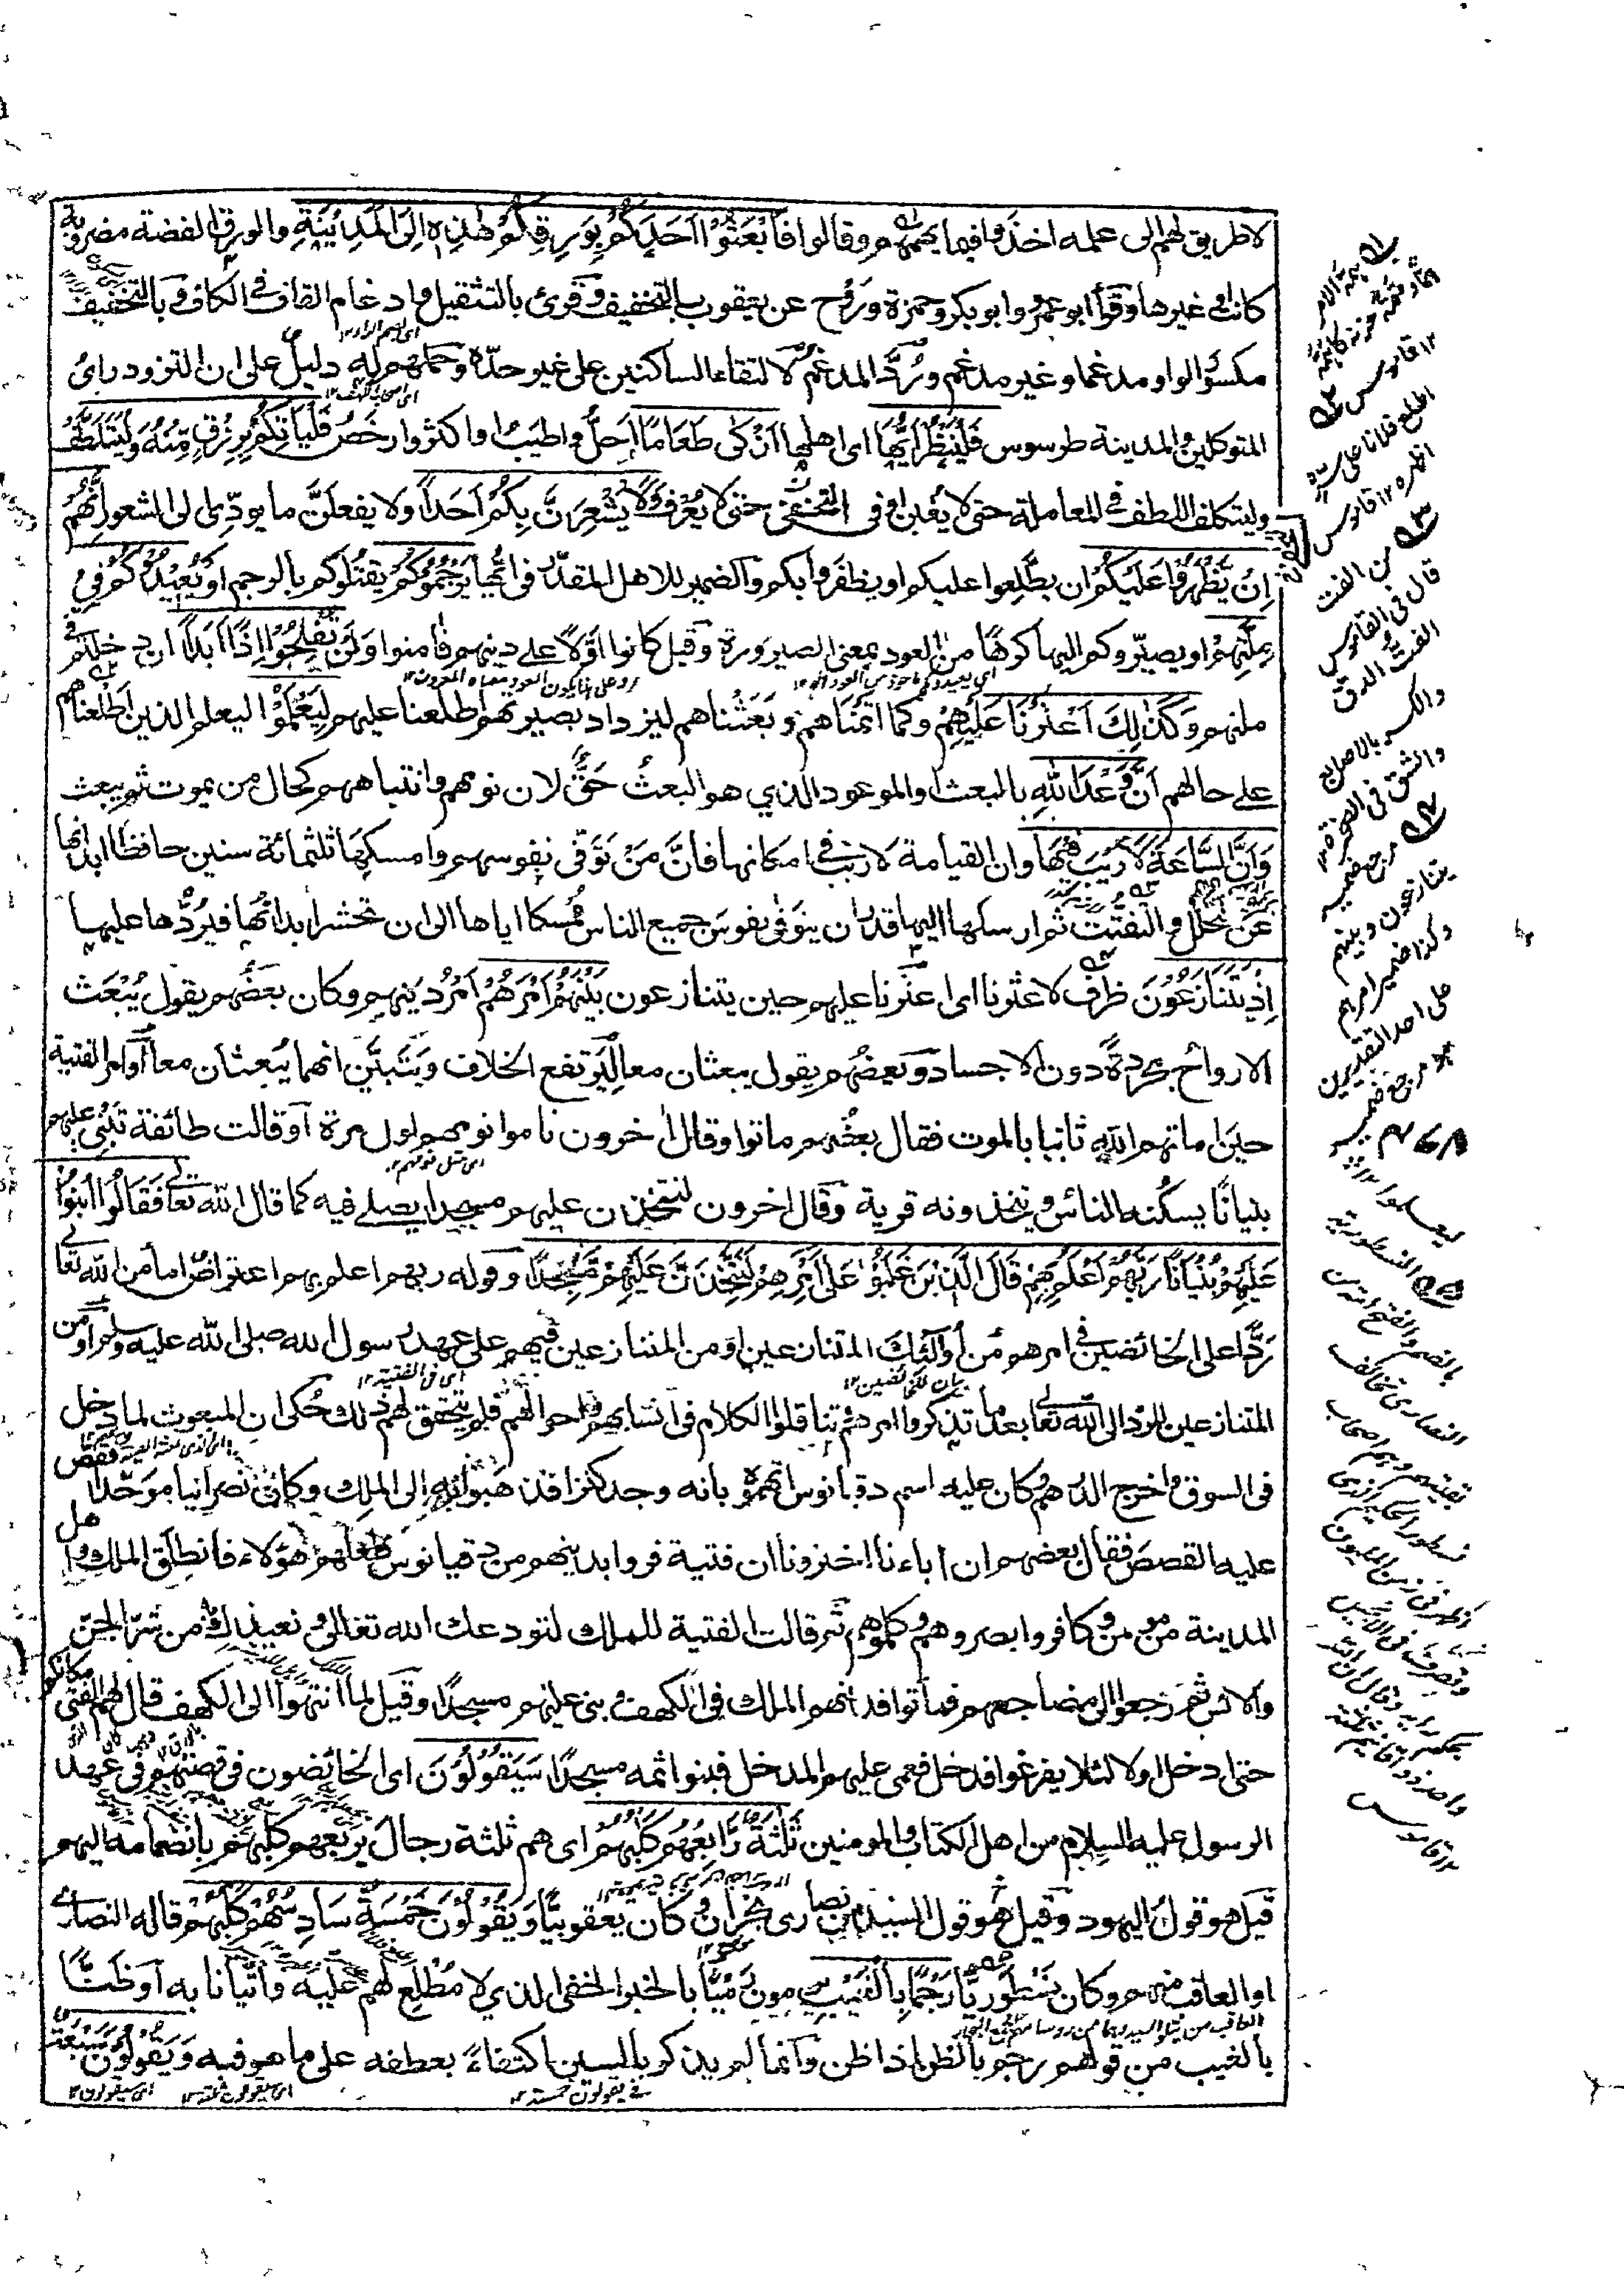 لا طريق لهم الى علمه اخذوا فيما يهمهم وقالوا فَابْعَثُوْا اَحَدَكُمْ بِوَرِقِكُمْ هٰذِهٖ اِلَى الْمَدِيْنَةِ والورق الفضة مضروبة
كانت او غيرها وقرأ ابو عمرو وابو بكر وحمزة وروح عن يعقوب بالتخفيف وقرئ بالتثقيل وادغام القاف فى الكاف وبالتخفيف
مكسور الواو مدغما وغير مدغم ورُدَّ المدغم لالتقاء الساكنين على غير حدّه وحملهم له دليل على ان التزود رائ
المتوكلين والمدينة طرسوس فَلْيَنْظُرْ اَيُّهَا اى اهلها اَزْكٰى طَعَامًا احلُّ واطيب او اكثر وارخص فَلْيَأْتِكُمْ بِرِزْقٍ مِّنْهُ وَلْيَتَلَطَّفْ
وليتكلف اللطف فى المعاملة حتى لا يغبن او فى التخفى حتى لا يعرف وَلَا يُشْعِرَنَّ بِكُمْ اَحَدًا ولا يفعلنَّ ما يودّى الى الشعور اِنَّهُمْ
اِنْ يَّظْهَرُوْا عَلَيْكُمْ ان يطّلعوا عليكم او يظفروا بكم والضمير للاهل المقدّر فى ايّها يَرْجُمُوْكُمْ يقتلوكم بالرجم اَوْ يُعِيْدُوْكُمْ فِىْ
مِلَّتِهِمْ او يصيّروكم اليها كرهًا من العود بمعنى الصيرورة وقيل كانوا اوّلا على دينهم فامنوا وَلَنْ تُفْلِحُوْا اِذًا اَبَدًا ان دخلتم فى
ملتهم وَكَذٰلِكَ اَعْثَرْنَا عَلَيْهِمْ وكما انمناهم وبعثناهم ليزداد بصيرتهم اطلعنا عليهم لِيَعْلَمُوْا ليعلم الذين اطلعناهم
على حالهم اَنَّ وَعْدَ اللّٰهِ بالبعث او الموعود الذي هو البعث حَقٌّ لان نومهم وانتباههم كحال من يموت ثم يبعث
وَاَنَّ السَّاعَةَ لَا رَيْبَ فِيْهَا وان القيامة لا ريب فى امكانها فانَّ مَنْ تَوَفّى نفوسهم وامسكها ثلثمائة سنين حافظا ابدانها
عن التحلل والتفتّت ثم ارسلها اليها قدر ان يتوفى نفوس جميع الناس ممسكا اياها الى ان تحشر ابدانها فيردّها عليها
اِذْ يَتَنَازَعُوْنَ ظرف لاعثرنا اى اعثرنا عليهم حين يتنازعون بَيْنَهُمْ اَمْرَهُمْ امر دينهم وكان بعضهم يقول يُبعث
الارواح مجردةً دون الاجساد وبعضهم يقول يبعثان معا ليرتفع الخلاف ويتبيّن انهما يُبعثان معا او امر الفتية
حين اماتهم الله ثانيا بالموت فقال بعضهم ماتوا وقال اخرون ناموا نومهم اول مرة او قالت طائفة نبنى عليهم
بنيانًا يسكنه الناس ويتخذونه قرية وقال اخرون لنتخذن عليهم مسجدا يصلى فيه كما قال الله تعالى فَقَالُوا ابْنُوْا
عَلَيْهِمْ بُنْيَانًا رَبُّهُمْ اَعْلَمُ بِهِمْ قَالَ الَّذِيْنَ غَلَبُوْا عَلٰى اَمْرِهِمْ لَنَتَّخِذَنَّ عَلَيْهِمْ مَّسْجِدًا وقوله ربهم اعلم بهم اعتراض اما من الله تعالى
رَدًّا على الخائضين فى امرهم من اولئك المتنازعين او من المتنازعين فيهم على عهد رسول الله صلى الله عليه وسلم او من
المتنازعين للرد الى الله تعالى بعد ما تذكروا امرهم وتناقلوا الكلام فى انسابهم واحوالهم فلم يتحقق لهم ذلك حُكى ان المبعوث لما دخل
فى السوق واخرج الدرهم وكان عليه اسم دقيانوس اتهموه بانه وجد كنزا فذهبوا به الى الملك وكان نصرانيا موحّدا فقص
عليه القصص فقال بعضهم ان اباءنا اخبرونا ان فتية فروا بدينهم من دقيانوس فلعلهم هؤلاء فانطلق الملك واهل
المدينة من مومن وكافر وابصروهم وكلموهم ثم قالت الفتية للملك نستودعك الله تعالى ونعيذك به من شرّ الجنّ
والانس ثم رجعوا الى مضاجعهم فماتوا فدفنهم الملك فى الكهف وبنى عليهم مسجدًا وقيل لما انتهوا الى الكهف قال لهم الفتى مكانكم
حتى ادخل اولا لئلا يفزعوا فدخل فعمى عليهم المدخل فبنوا ثمه مسجدًا سَيَقُوْلُوْنَ اى الخائضون فى قصتهم فى عهد
الرسول عليه السلام من اهل الكتاب والمومنين ثَلٰثَةٌ رَّابِعُهُمْ كَلْبُهُمْ اى هم ثلثة رجال يربعهم كلبهم بانضمامه اليهم
قيل هو قول اليهود وقيل هو قول السيد من نصارى نجران وكان يعقوبيًّا وَيَقُوْلُوْنَ خَمْسَةٌ سَادِسُهُمْ كَلْبُهُمْ قاله النصارى
او العاقب منهم وكان نسطوريّا رَجْمًا بِالْغَيْبِ يرمون رميًا بالخبر الخفى الذي لا مُطّلع لهم عليه واتيانا به او ظنًّا
بالغيب من قولهم رجم بالظن اذا ظن وانما لم يذكر بالسين اكتفاءً بعطفه على ما هو فيه وَيَقُوْلُوْنَ سَبْعَةٌ
فى يقولون خمسة ١٢
اى سيقولون ثلثة ١٢
اى سيقولون ١٢
١٢ قاموس
اطلع فلانا على سره
اظهره ١٢ قاموس
من الفت
قال فى القاموس
الفت الدق
والكسر بالاصابع
والشق فى الصخرة ١٢
مرجع ضمير
يتنازعون وبينهم
وكذا ضمير امرهم
على احد التقديرين
مرجع ضمير
ليعلموا ١٢
النسطورية
بالضم والفتح امة من
النصارى تخالف
بقيتهم وهم اصحاب
نسطور الحكيم الذى
ظهر فى زمن المامون
وتصرف فى الانجيل
بحكم رايه وقال ان الله
واحد ذو اقانيم ثلثة
١٢ قاموس